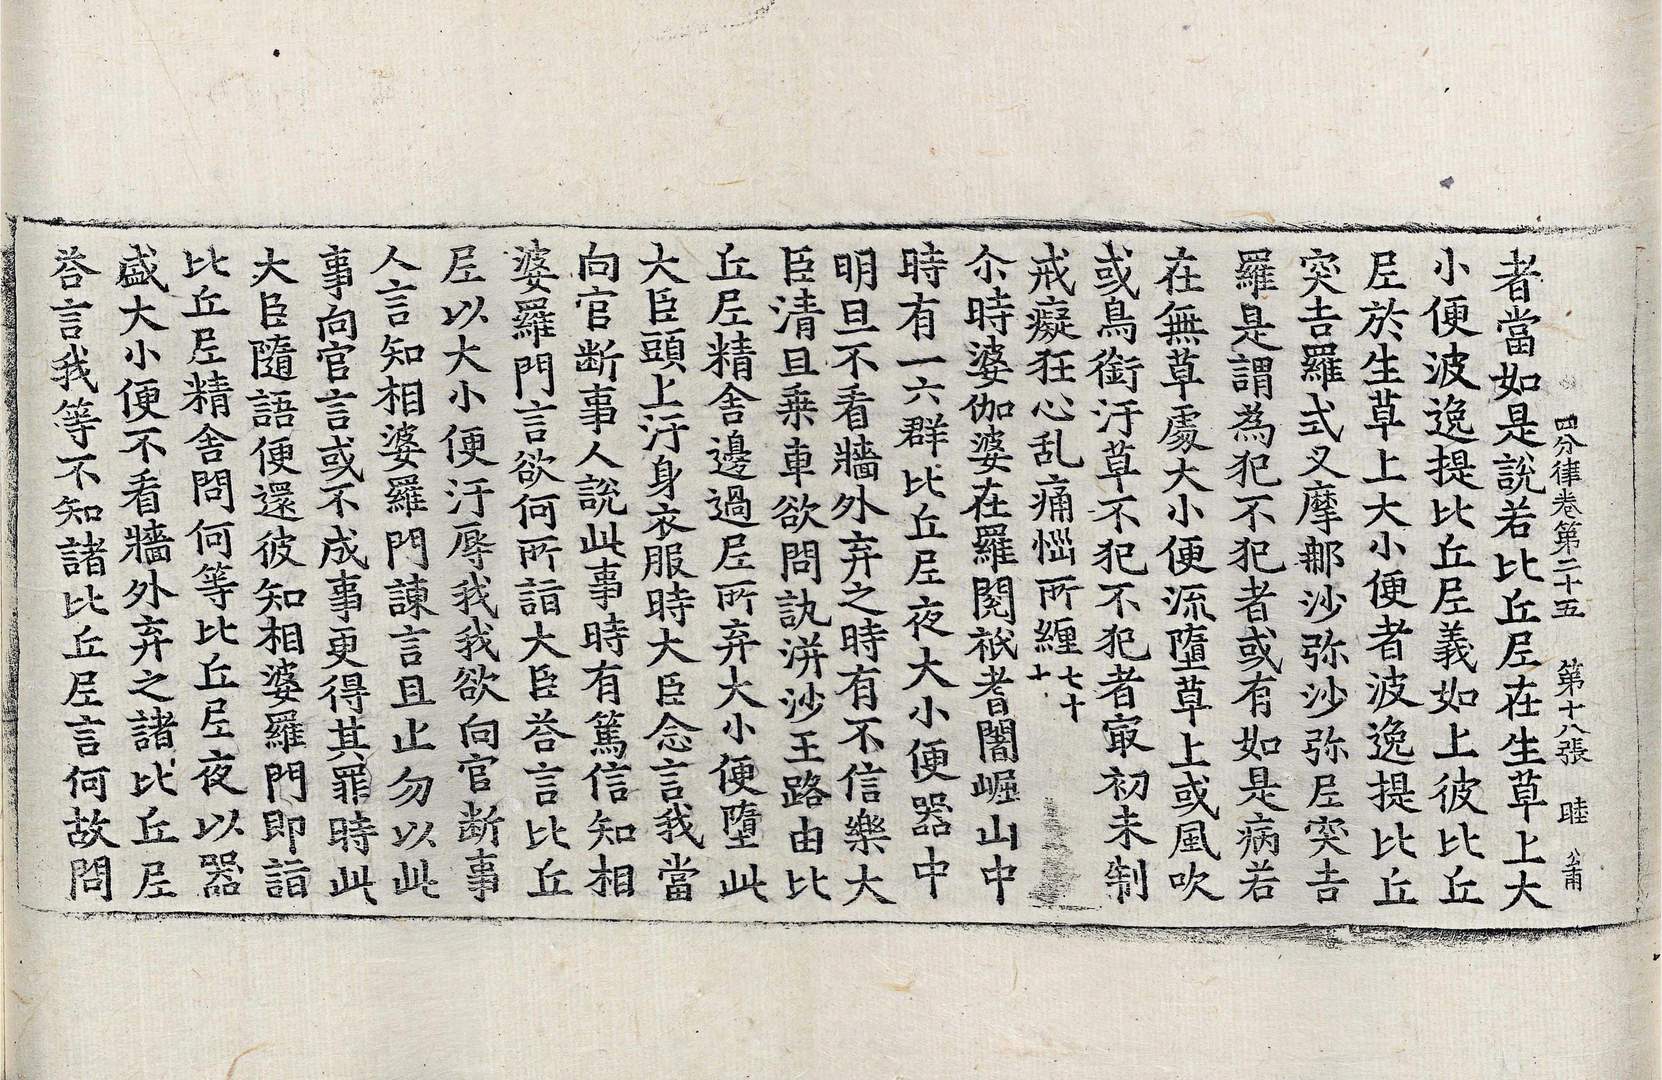 四分律卷第二十五 第十八張 睦 公甫
者當如是說若比丘尼在生草上大
小便波逸提比丘尼義如上彼比丘
尼於生草上大小便者波逸提比丘
突吉羅式叉摩那沙弥沙弥尼突吉
羅是謂為犯不犯者或有如是病若
在無草處大小便流墮草上或風吹
或鳥銜汙草不犯不犯者㝡初未制
戒癡狂心乱痛惱所纏七十十
尒時婆伽婆在羅閱祇耆闍崛山中
時有一六群比丘尼夜大小便器中
明旦不看牆外弃之時有不信樂大
臣清旦乗車欲問訊洴沙王路由比
丘尼精舍邊過尼所弃大小便墮此
大臣頭上汙身衣服時大臣念言我當
向官断事人說此事時有篤信知相
婆羅門言欲何所詣大臣荅言比丘
尼以大小便汙辱我我欲向官断事
人言知相婆羅門諫言且止勿以此
事向官言或不成事更得其罪時此
大臣隨語便還彼知相婆羅門即詣
比丘尼精舍問何等比丘尼夜以器
盛大小便不看牆外弃之諸比丘尼
荅言我等不知諸比丘尼言何故問